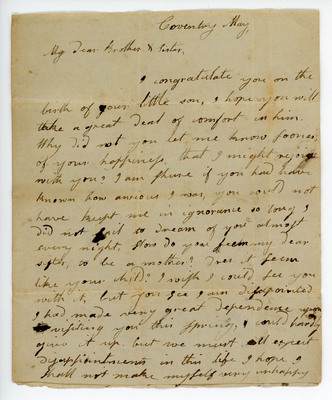 Coventry May,
My dear Brother & Sister,
I congratulate you on the
birth of your little son, I hope you will
take a great deal of comfort in him.
Why did not you let me know sooner
of your happiness, that I might rejoice
with you? I am shure if you had have
known how anxious I was, you could not
have kept me in ignorance so long I
did not fail to dream of you almost
every night, How do you my dear
sister, to be a mother? Does it seem
like your child? I wish I could see you
with it, but you see I am disappointed
I had made very great dependence upon
visiting you this spring, I could hardly
give it up, but we must all expect
disappointments in this life I hope I
shall not make myself very unhappy